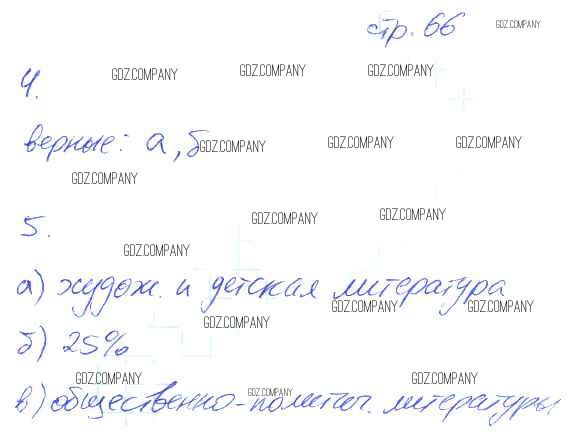 стр. 66
GDZ.COMPANY
4.
GDZ.COMPANY GDZ.COMPANY GDZ.COMPANY
верные: а, б
GDZ.COMPANY GDZ.COMPANY GDZ.COMPANY
GDZ.COMPANY
5.
GDZ.COMPANY GDZ.COMPANY
GDZ.COMPANY
а) худож. и детская литература
GDZ.COMPANY GDZ.COMPANY
GDZ.COMPANY
б) 25%
GDZ.COMPANY GDZ.COMPANY GDZ.COMPANY
в) общественно-политич. литературы